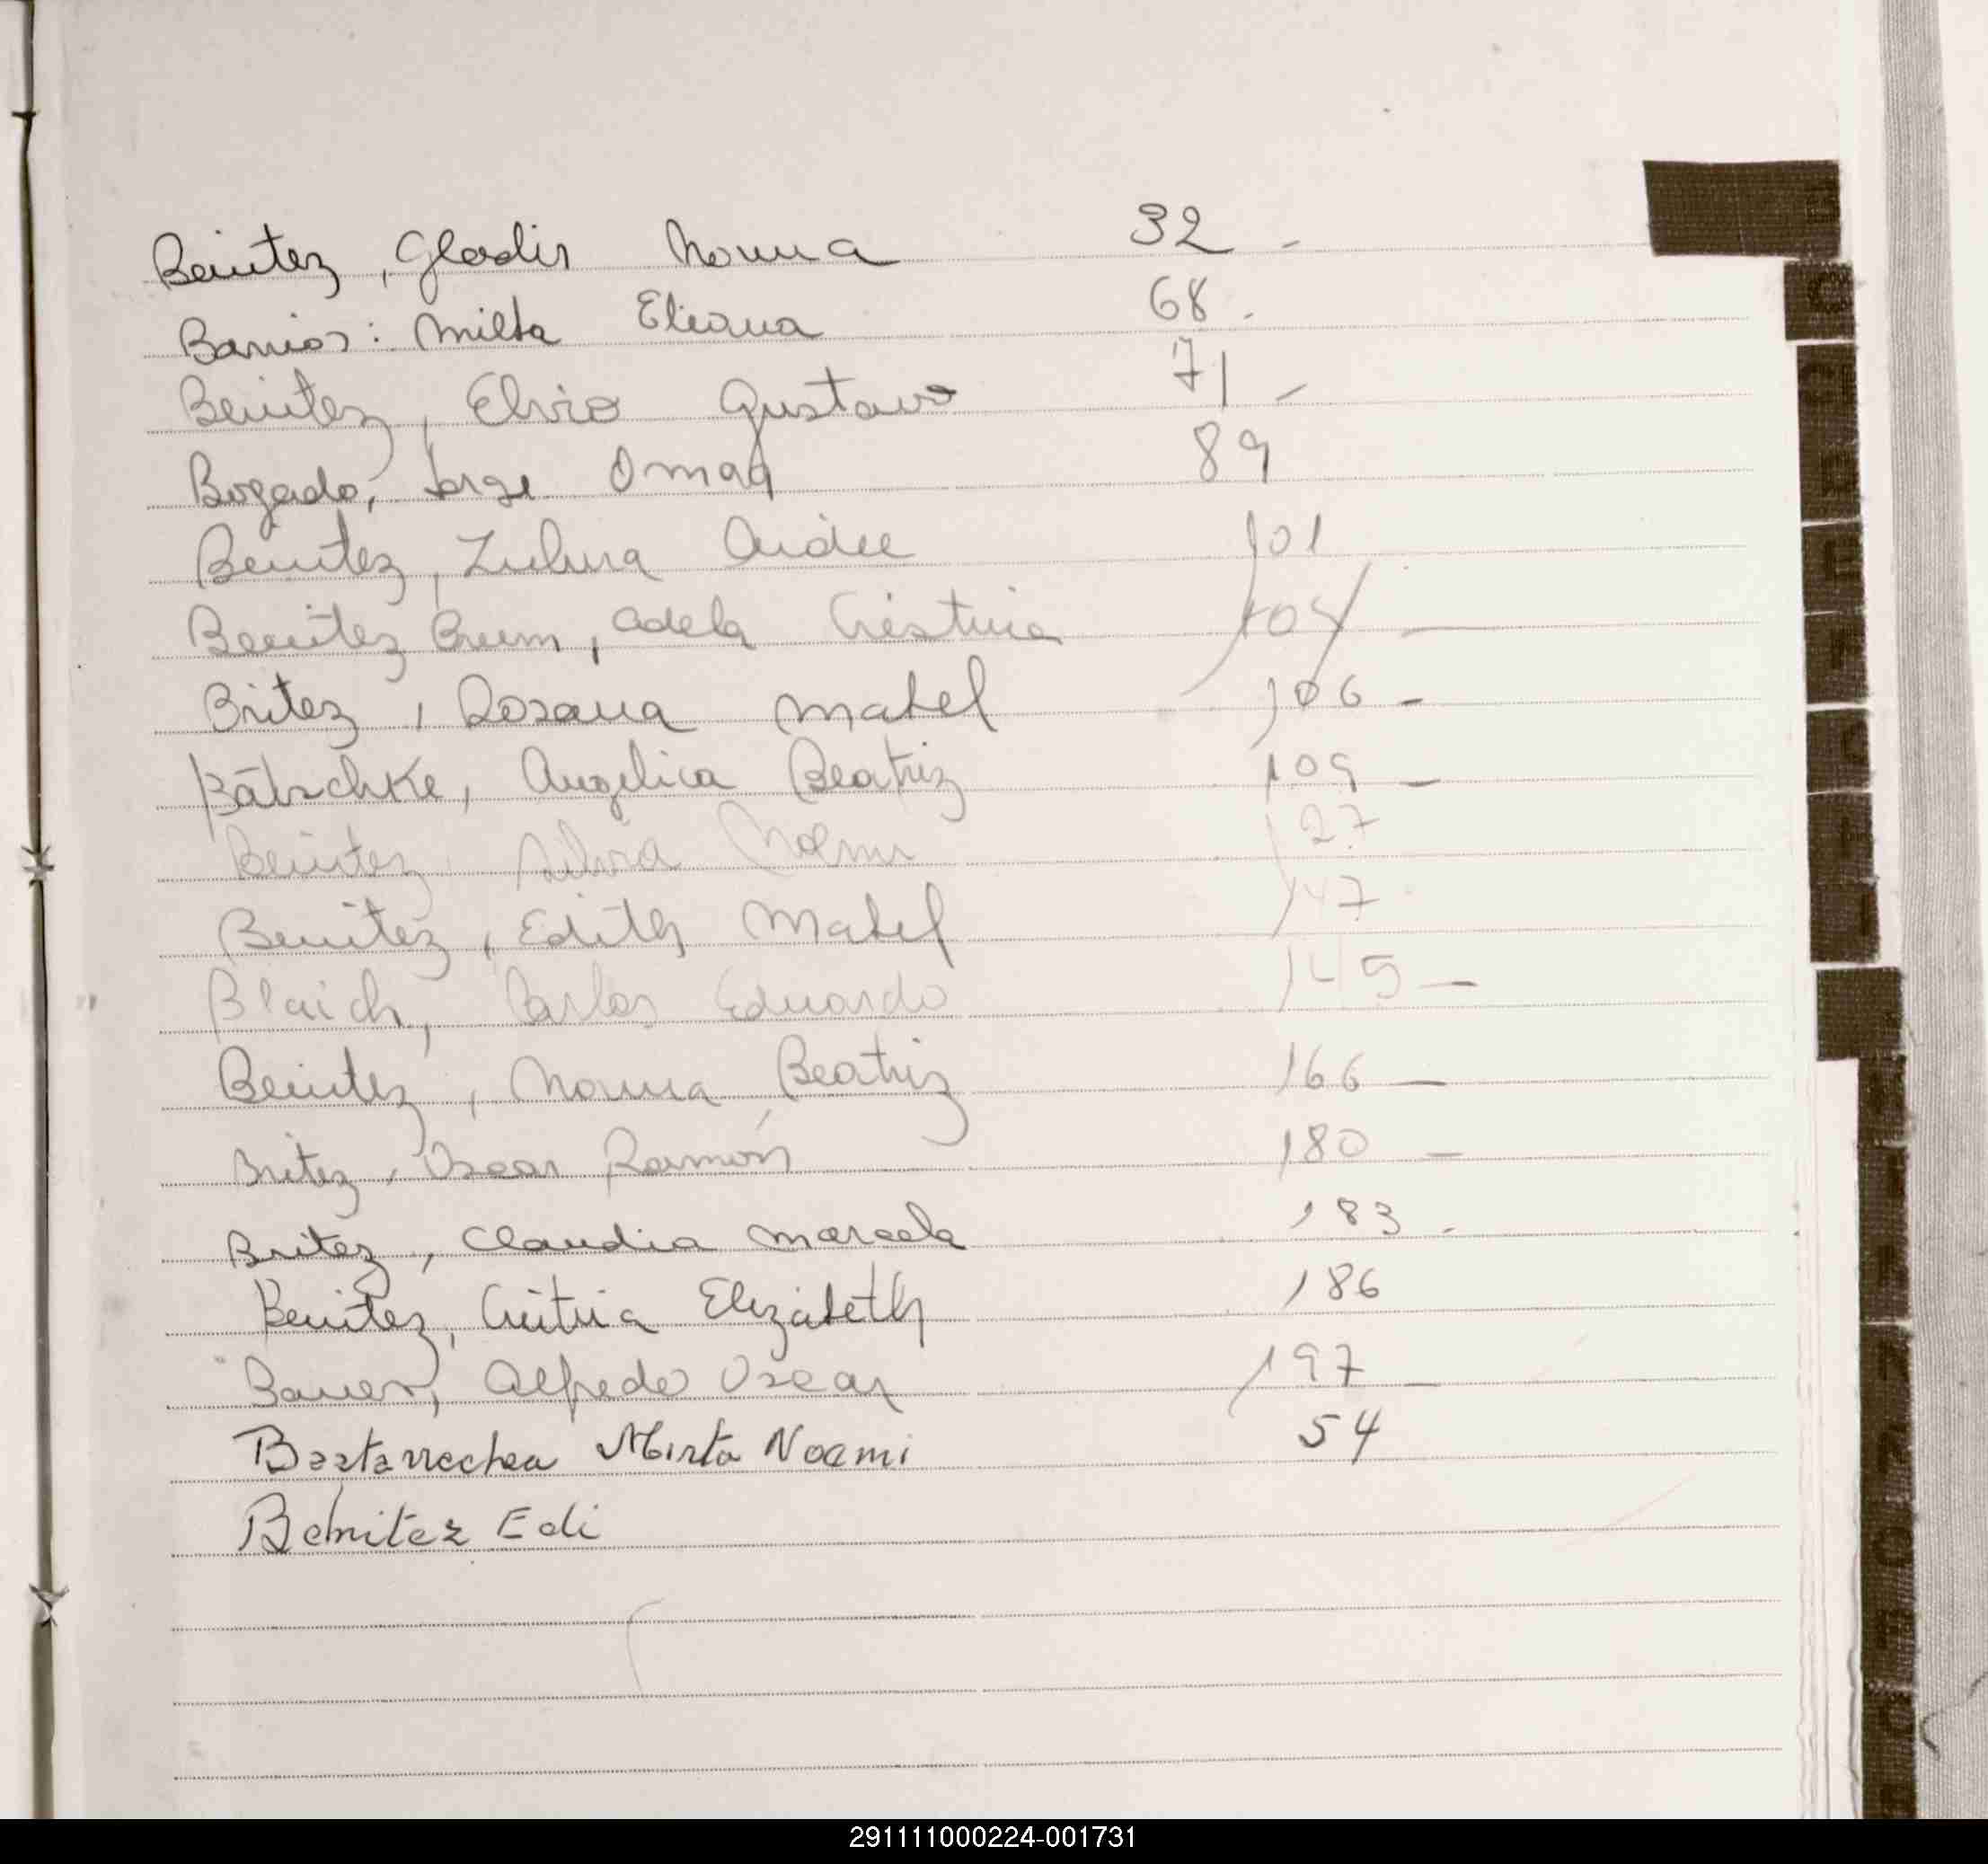 Benitez, Gladis Norma 32 -
Barrios: Milta Eliana 68.
Benitez, Elvio Gustavo 71 -
Bogado, Jorge Omar 89
Benitez, Zulma Aidee 101
Benitez Brum, Adela Cristina 104 -
Britez, Rosana Mabel 106 -
Bätschke, Angelica Beatriz 109 -
Benitez Silvia Noemi 127
Benitez, Edith Mabel 147
Blaich, Carlos Eduardo 145 -
Benitez, Norma Beatriz 166 -
Britez, Oscar Ramón 180 -
Britez, Claudia Marcela 183 -
Benitez, Elizabeth 186
Bauer, Alfredo Oscar 197 -
Bastarrechea Mirta Noemi 54
Benitez Edi
291111000224-001731